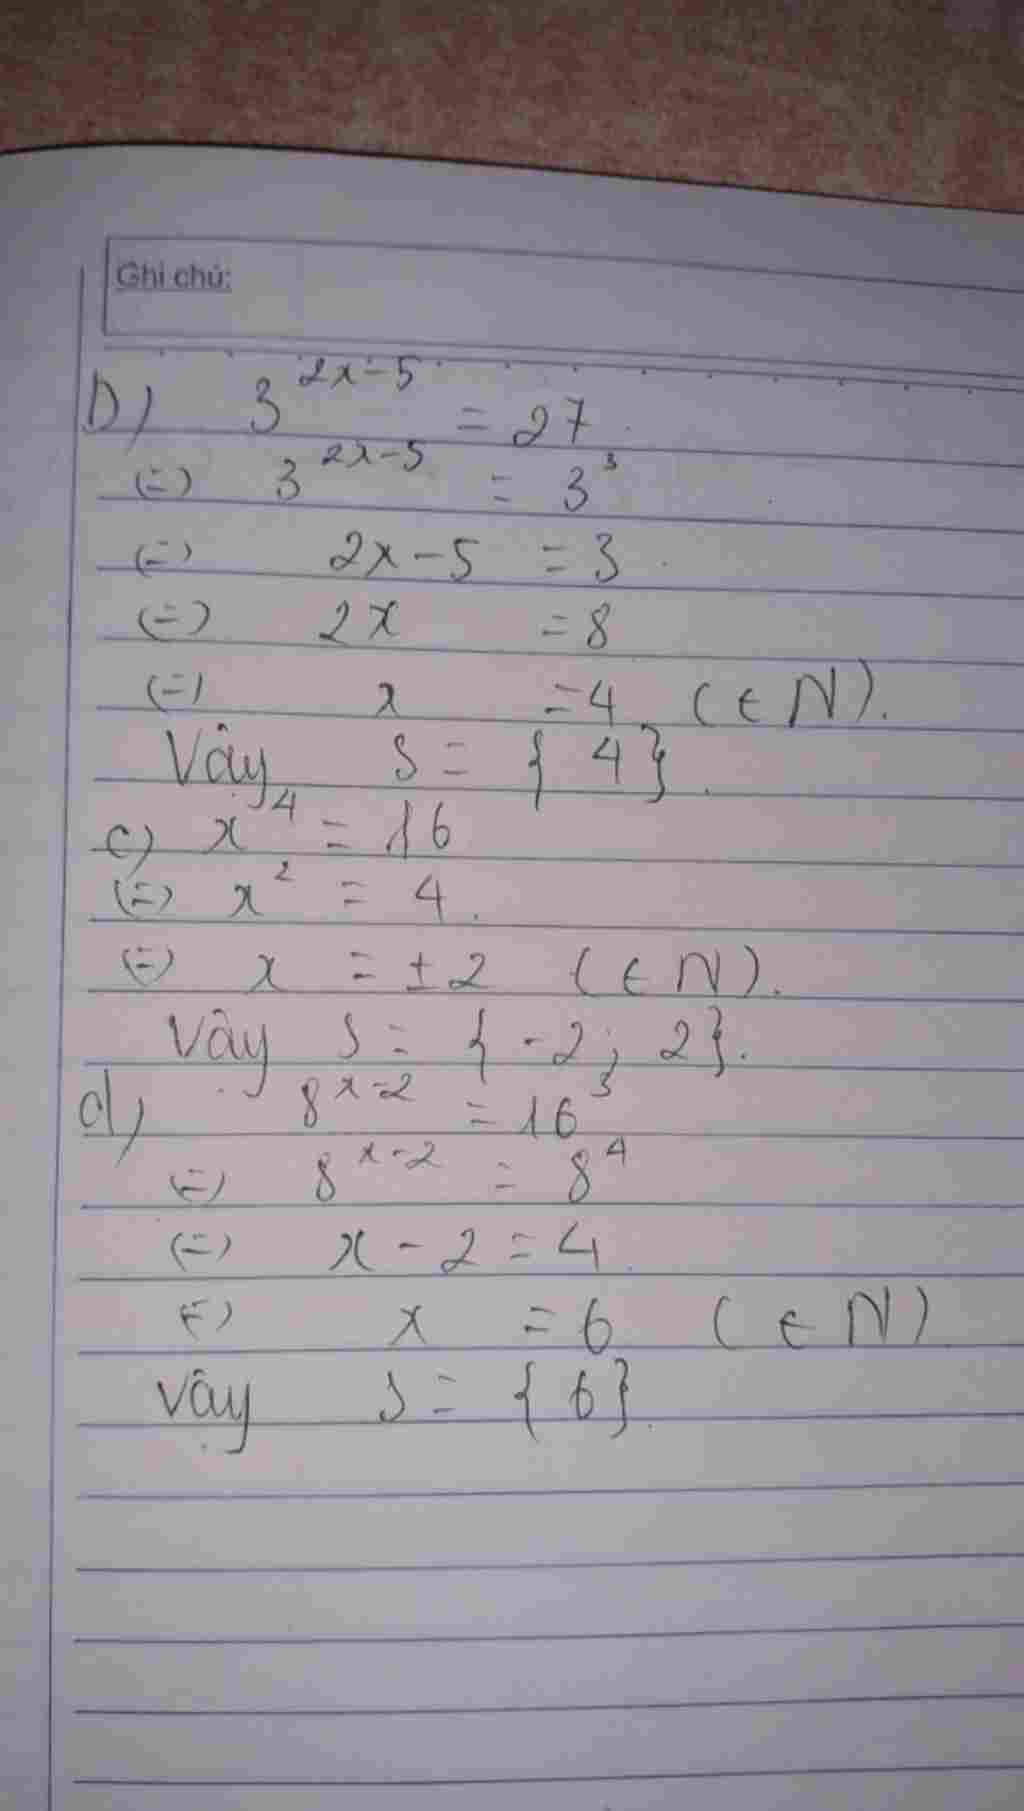 Ghi chú:
b) 3^{2x-5} = 27
(=) 3^{2x-5} = 3^3
(=) 2x-5 = 3
(=) 2x = 8
(=) x = 4 (∈ N).
Vậy S = { 4 }.
c) x^4 = 16
(=) x^2 = 4.
(=) x = ±2 (∈ N).
Vậy S = { -2; 2 }.
d) 8^{x-2} = 16^3
(=) 8^{x-2} = 8^4
(=) x - 2 = 4
(=) x = 6 (∈ N)
Vậy S = { 6 }.